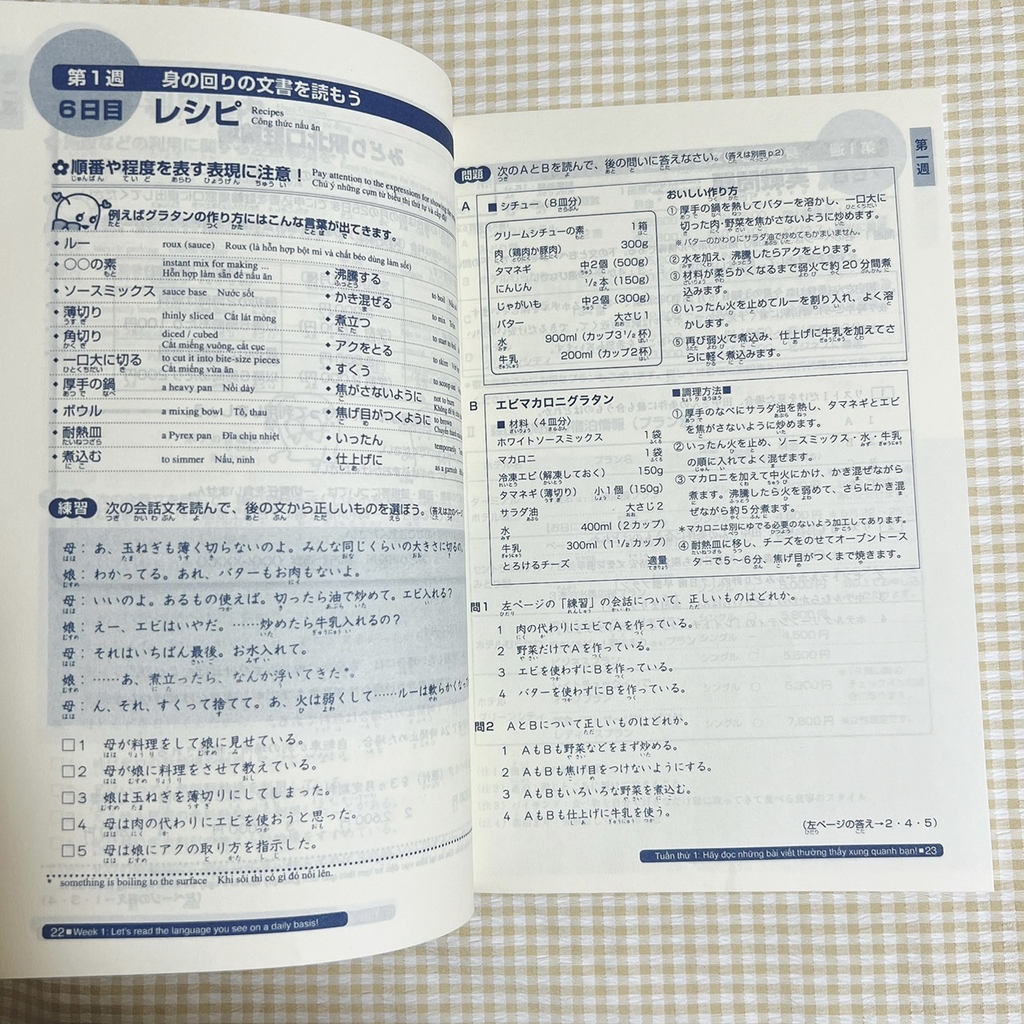 第1週 身の回りの文書を読もう
6日目 レシピ Recipes
Công thức nấu ăn
順番や程度を表す表現に注意！ Pay attention to the expressions for showing
Chú ý những cụm từ biểu thị thứ tự và cấp độ
例えばグラタンの作り方にはこんな言葉が出てきます。
ルー roux (sauce) Roux (là hỗn hợp bột mì và chất béo dùng làm sốt)
○○の素 instant mix for making …
Hỗn hợp làm sẵn để nấu ăn
ソースミックス sauce base Nước sốt
薄切り thinly sliced Cắt lát mỏng
角切り diced / cubed
Cắt miếng vuông, cắt cục
一口大に切る to cut it into bite-size pieces
Cắt miếng vừa ăn
厚手の鍋 a heavy pan Nồi dày
ボウル a mixing bowl Tô, thau
耐熱皿 a Pyrex pan Đĩa chịu nhiệt
煮込む to simmer Nấu, ninh
沸騰する to boil
かき混ぜる to mix
煮立つ to start to
アクをとる to skim
すくう to scoop
焦がさないように not to burn
焦げ目がつくように to brown
いったん
仕上げに as a garnish
練習 次の会話文を読んで、後の文から正しいものを選ぼう。
母：あ、玉ねぎも薄く切らないのよ。みんな同じくらいの大きさに切るの。
娘：わかってる。あれ、バターもお肉もないよ。
母：いいのよ。あるもの使えば。切ったら油で炒めて。エビ入れる？
娘：えー、エビはいやだ。……炒めたら牛乳入れるの？
母：それはいちばん最後。お水入れて。
娘：……あ、煮立ったら、なんか浮いてきた*。
母：ん、それ、すくって捨てて。あ、火は弱くして……ルーは軟らかくなっ
□1 母が料理をして娘に見せている。
□2 母が娘に料理をさせて教えている。
□3 娘は玉ねぎを薄切りにしてしまった。
□4 母は肉の代わりにエビを使おうと思った。
□5 母は娘にアクの取り方を指示した。
* something is boiling to the surface Khi sôi thì có gì đó nổi lên.
22 ■ Week 1: Let's read the language you see on a daily basis!
第一週
問題 次のAとBを読んで、後の問いに答えなさい。（答えは別冊 p.2）
A
■シチュー（8皿分）
クリームシチューの素 1箱
肉（鶏肉か豚肉） 300g
タマネギ 中2個（500g）
にんじん 1/2本（150g）
じゃがいも 中2個（300g）
バター 大さじ1
水 900ml（カップ3 1/2杯）
牛乳 200ml（カップ2杯）
おいしい作り方
①厚手の鍋を熱してバターを溶かし、一口大に
切った肉・野菜を焦がさないように炒めます。
※バターのかわりにサラダ油で炒めてもかまいません。
②水を加え、沸騰したらアクをとります。
③材料が柔らかくなるまで弱火で約20分間煮
込みます。
④いったん火を止めてルーを割り入れ、よく溶
かします。
⑤再び弱火で煮込み、仕上げに牛乳を加えてさ
らに軽く煮込みます。
B
エビマカロニグラタン
■材料（4皿分）
ホワイトソースミックス 1袋
マカロニ 1袋
冷凍エビ（解凍しておく） 150g
タマネギ（薄切り） 小1個（150g）
サラダ油 大さじ2
水 400ml（2カップ）
牛乳 300ml（1 1/2カップ）
とろけるチーズ 適量
■調理方法■
①厚手のなべにサラダ油を熱し、タマネギとエビ
を焦がさないように炒めます。
②いったん火を止め、ソースミックス・水・牛乳
の順に入れてよく混ぜます。
③マカロニを加えて中火にかけ、かき混ぜながら
煮ます。沸騰したら火を弱めて、さらにかき混
ぜながら約5分煮ます。
*マカロニは別にゆでる必要のないよう加工してあります。
④耐熱皿に移し、チーズをのせてオーブントース
ターで5～6分、焦げ目がつくまで焼きます。
問1 左ページの「練習」の会話について、正しいものはどれか。
1 肉の代わりにエビでAを作っている。
2 野菜だけでAを作っている。
3 エビを使わずにBを作っている。
4 バターを使わずにBを作っている。
問2 AとBについて正しいものはどれか。
1 AもBも野菜などをまず炒める。
2 AもBも焦げ目をつけないようにする。
3 AもBもいろいろな野菜を煮込む。
4 AもBも仕上げに牛乳を使う。
（左ページの答え→2・4・5）
Tuần thứ 1: Hãy đọc những bài viết thường thấy xung quanh bạn! ■ 23